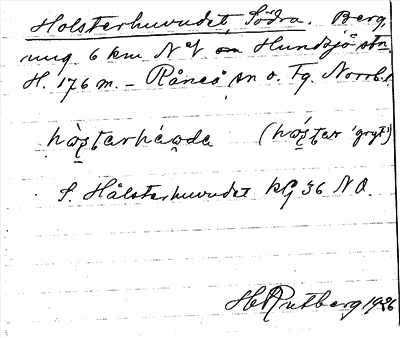 Holsterhuvudet, Södra. Berg,
ung 6 km NV om Hundsjö stn
H. 176 m. – Råneå sn o. Tg. Norrb. l.
hòl̥starhéuda (hól̥star 'gryt')
S. Hålsterhuvudet KG 36 NO.
H Rutberg 1926